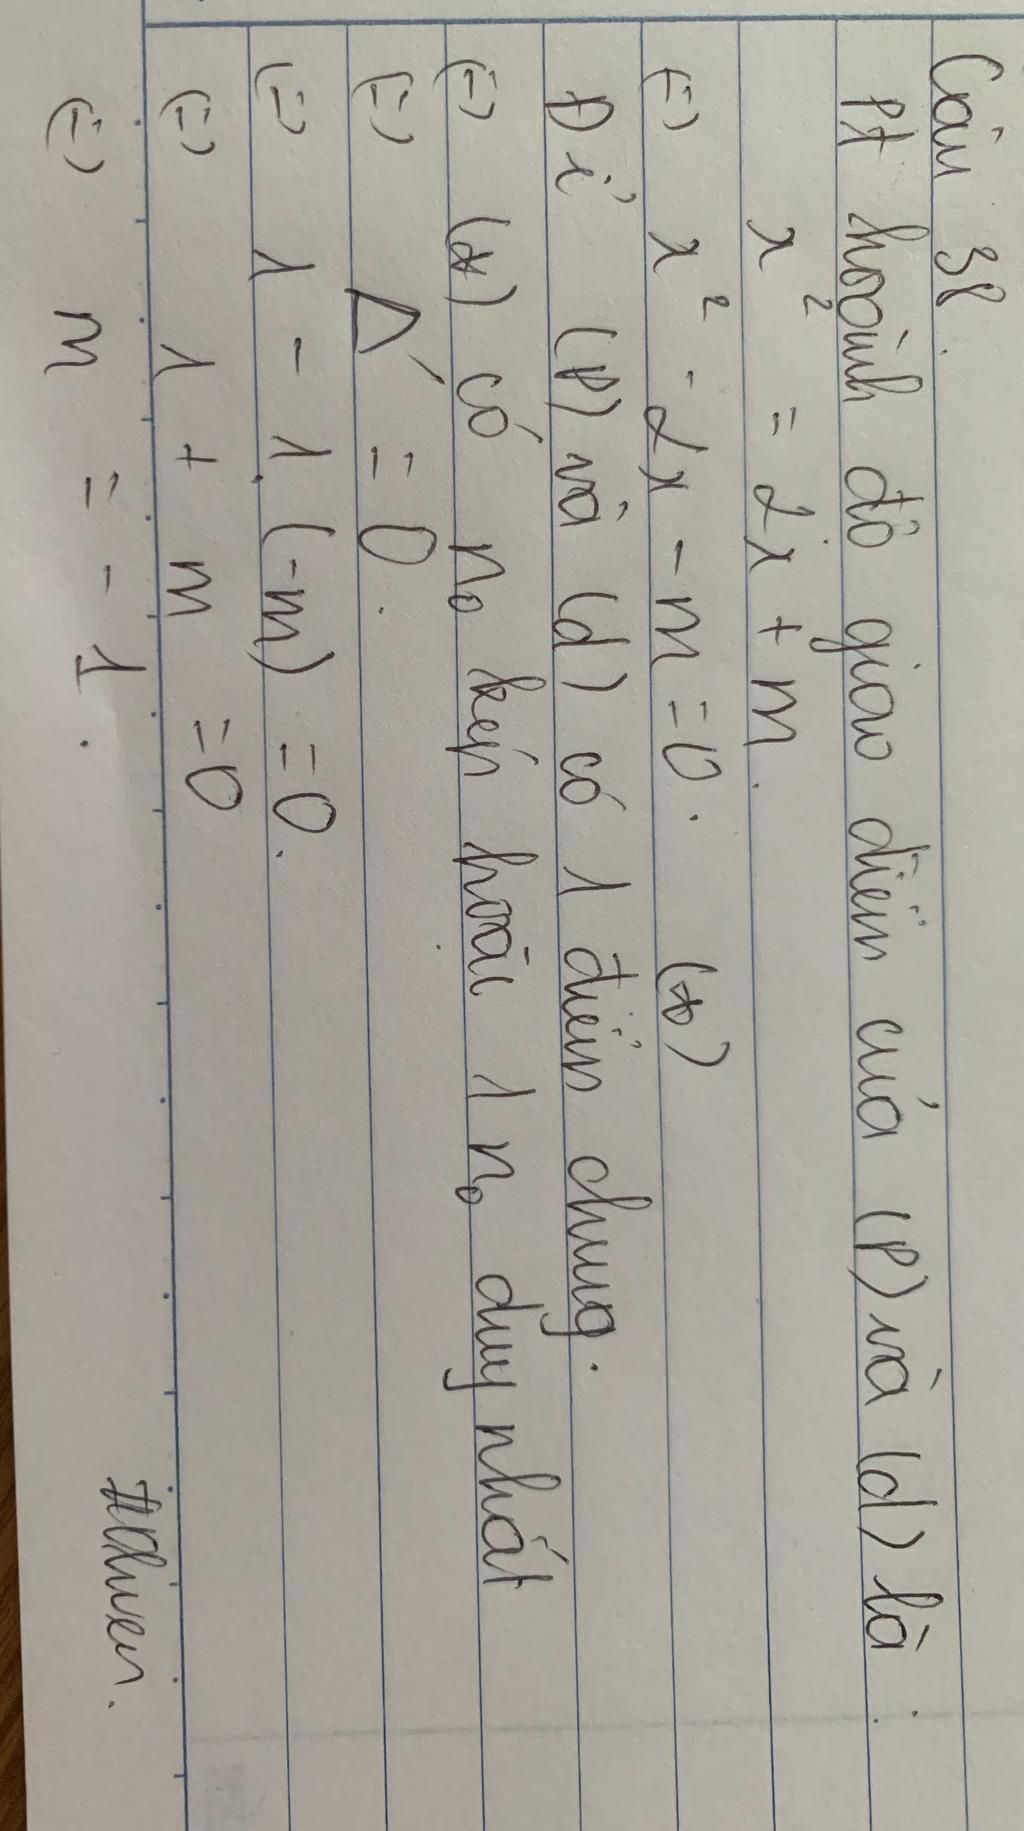 Câu 38.
Pt hoành độ giao điểm của (P) và (d) là :
x² = 2x + m.
(=) x² - 2x - m = 0. (*)
Để (P) và (d) có 1 điểm chung.
(=) (*) có n₀ kép hoặc 1 n₀ duy nhất
(=) Δ' = 0.
(=) 1 - 1.(-m) = 0.
(=) 1 + m = 0
(=) m = -1.